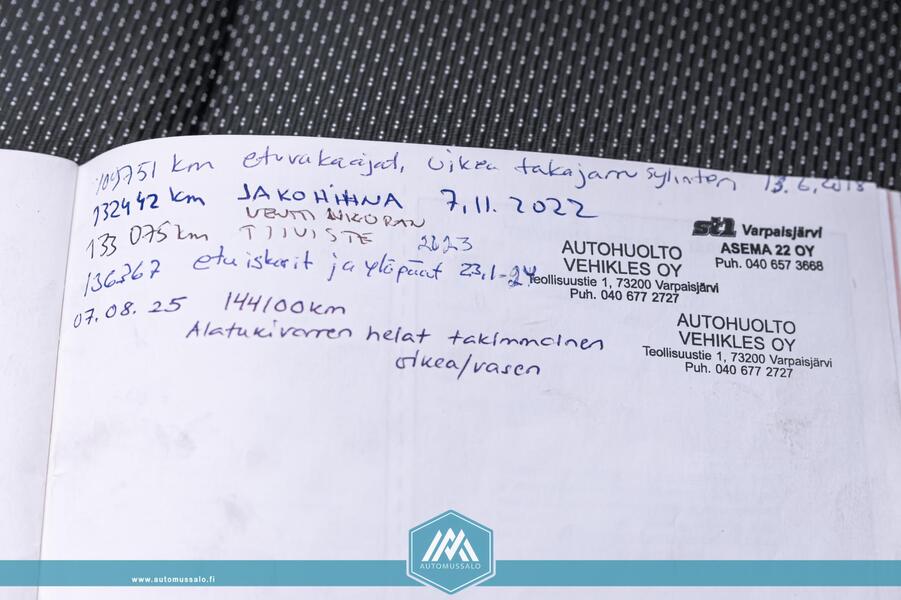 km etuvakaajat, oikea takajarru sylinteri 13.6.2018
132442 km JAKOHIHNA 7.11.2022
VENTTIILIKOPAN
133 075 km TIIVISTE 2023
136367 etuiskarit ja yläpäät 23.1-24
07.08.25 144100km
Alatukivarren helat takimmainen
oikea/vasen
st1 Varpaisjärvi
ASEMA 22 OY
Puh. 040 657 3668
AUTOHUOLTO
VEHIKLES OY
Teollisuustie 1, 73200 Varpaisjärvi
Puh. 040 677 2727
AUTOHUOLTO
VEHIKLES OY
Teollisuustie 1, 73200 Varpaisjärvi
Puh. 040 677 2727
www.automussalo.fi
AUTOMUSSALO